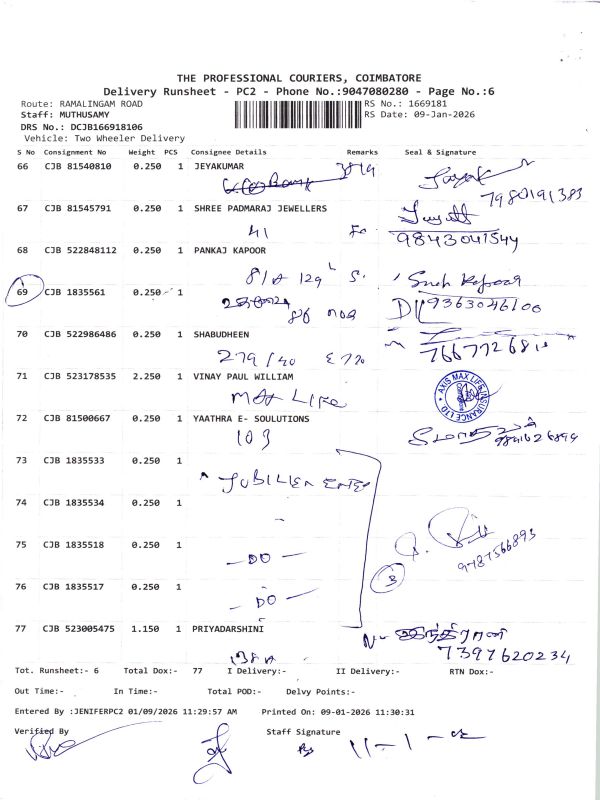 THE PROFESSIONAL COURIERS, COIMBATORE
Delivery Runsheet - PC2 - Phone No.:9047080280 - Page No.:6
Route: RAMALINGAM ROAD RS No.: 1669181
Staff: MUTHUSAMY RS Date: 09-Jan-2026
DRS No.: DCJB166918106
Vehicle: Two Wheeler Delivery
S No Consignment No Weight PCS Consignee Details Remarks Seal & Signature
66 CJB 81540810 0.250 1 JEYAKUMAR
7980191383
67 CJB 81545791 0.250 1 SHREE PADMARAJ JEWELLERS
41
9843041544
68 CJB 522848112 0.250 1 PANKAJ KAPOOR
81A 129 S. Sneh Kapoor
69 CJB 1835561 0.250 1
9363046100
70 CJB 522986486 0.250 1 SHABUDHEEN
279/40
71 CJB 523178535 2.250 1 VINAY PAUL WILLIAM
MAX LIFE
AXIS MAX LIFE INSURANCE LTD
72 CJB 81500667 0.250 1 YAATHRA E- SOULUTIONS
103
73 CJB 1835533 0.250 1
JUBILEE
74 CJB 1835534 0.250 1
75 CJB 1835518 0.250 1
- DO -
9787566893
3
76 CJB 1835517 0.250 1
- DO -
77 CJB 523005475 1.150 1 PRIYADARSHINI
7397620234
138A
Tot. Runsheet:- 6 Total Dox:- 77 I Delivery:- II Delivery:- RTN Dox:-
Out Time:- In Time:- Total POD:- Delvy Points:-
Entered By :JENIFERPC2 01/09/2026 11:29:57 AM Printed On: 09-01-2026 11:30:31
Verified By Staff Signature